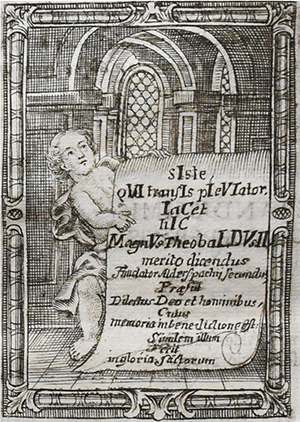 sIste,
qVI transIs pIe VIator.
IaCet
hIC
MagnVs TheobaLDVs II
merito dicendus
fundator Alderspachii secundus
Præsul
Dilectus Deo et hominibus,
Cuius
memoria in benedictione est:
Similem illum
fecit
in gloria Sanctorum